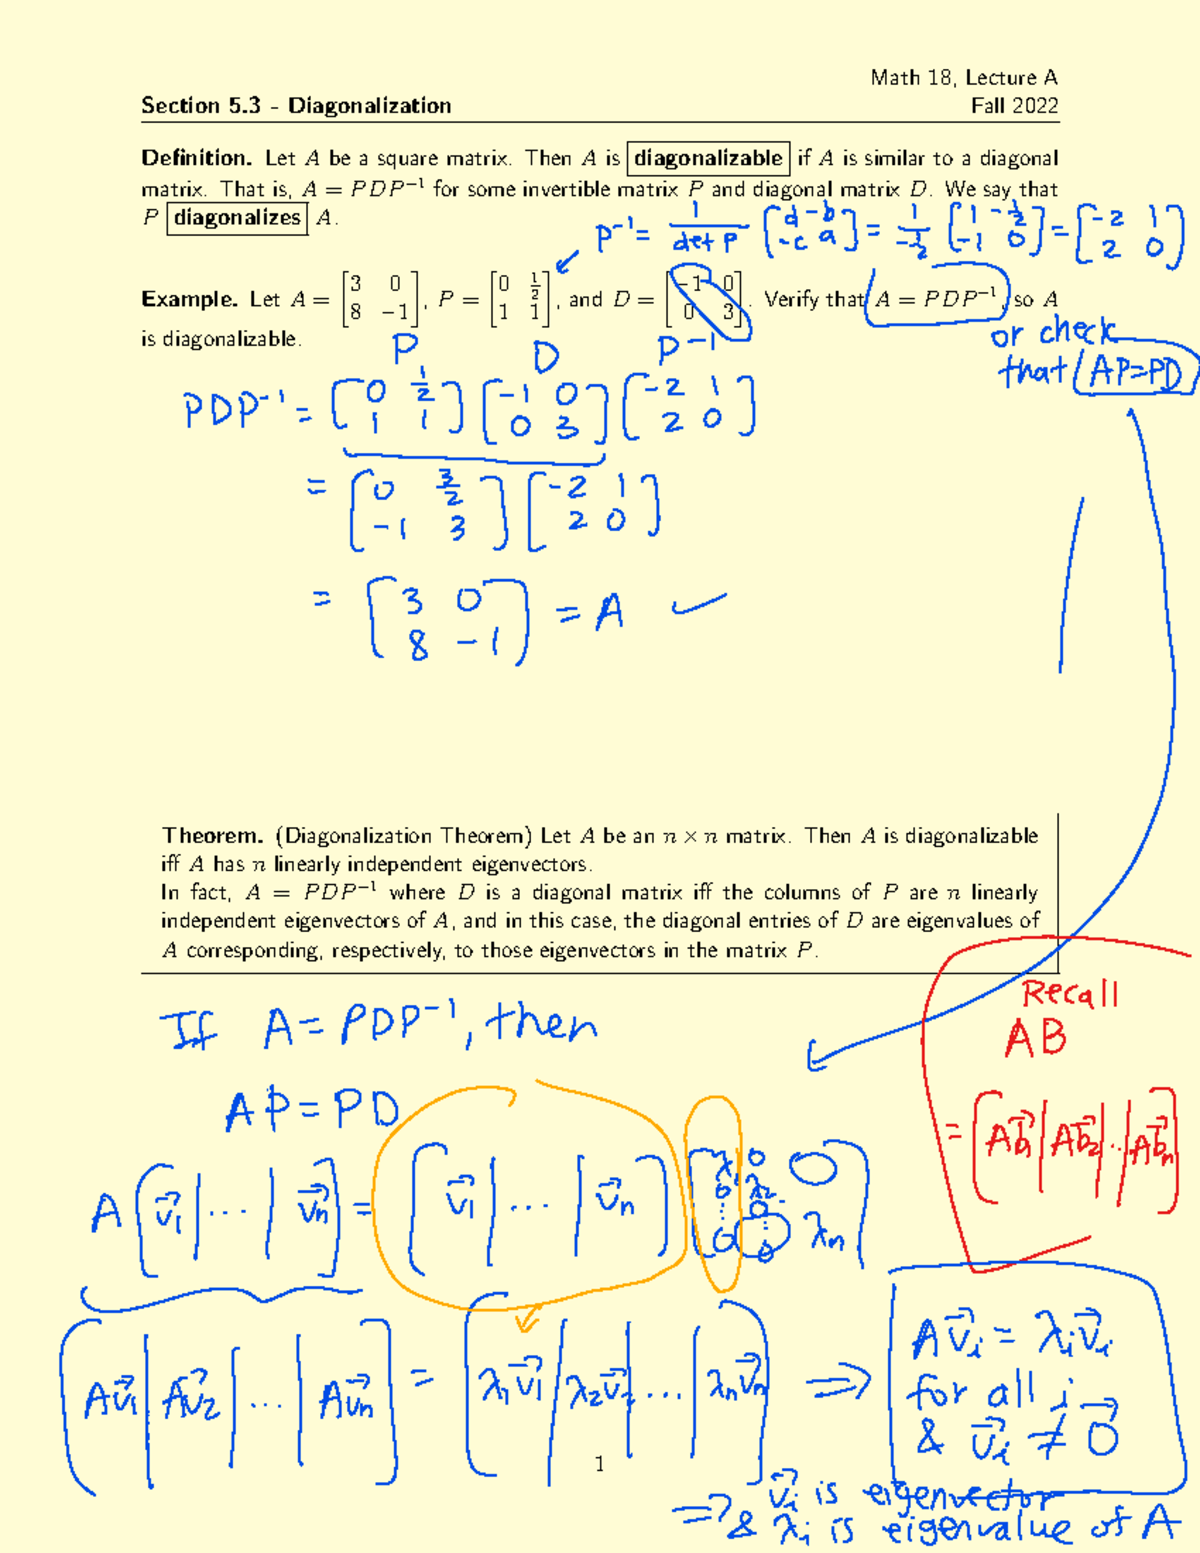 Math 18, Lecture A
Section 5.3 - Diagonalization Fall 2022
Definition. Let A be a square matrix. Then A is diagonalizable if A is similar to a diagonal
matrix. That is, A = PDP⁻¹ for some invertible matrix P and diagonal matrix D. We say that
P diagonalizes A.
P⁻¹ = 1/det P [d -b; -c a] = 1/(-1/2) [1 -1/2; -1 0] = [-2 1; 2 0]
Example. Let A = [3 0; 8 -1], P = [0 1/2; 1 1], and D = [-1 0; 0 3]. Verify that A = PDP⁻¹, so A
is diagonalizable.
or check
that AP=PD
P D P⁻¹
PDP⁻¹ = [0 1/2; 1 1] [-1 0; 0 3] [-2 1; 2 0]
= [0 3/2; -1 3] [-2 1; 2 0]
= [3 0; 8 -1] = A ✓
Theorem. (Diagonalization Theorem) Let A be an n × n matrix. Then A is diagonalizable
iff A has n linearly independent eigenvectors.
In fact, A = PDP⁻¹ where D is a diagonal matrix iff the columns of P are n linearly
independent eigenvectors of A, and in this case, the diagonal entries of D are eigenvalues of
A corresponding, respectively, to those eigenvectors in the matrix P.
Recall
AB
= [Ab⃗₁ | Ab⃗₂ ... | Ab⃗n]
If A = PDP⁻¹, then
AP = PD
A [v⃗₁ | ... | v⃗n] = [v⃗₁ | ... | v⃗n] [λ₁ 0 0; 0 λ₂; ⋮ 0 ⋮; 0 0 λn]
[Av⃗₁ | Av⃗₂ | ... | Av⃗n] = [λ₁v⃗₁ | λ₂v⃗₂ | ... | λnv⃗n] ⇒
Av⃗i = λiv⃗i
for all i
& v⃗i ≠ 0⃗
1
⇒ v⃗i is eigenvector
& λi is eigenvalue of A